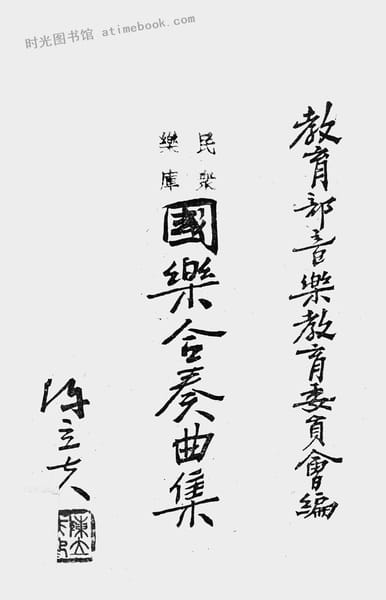 时光图书馆 atimebook.com
教育部音樂教育委員會編
民衆
樂庫
國樂合奏曲集
陈立夫